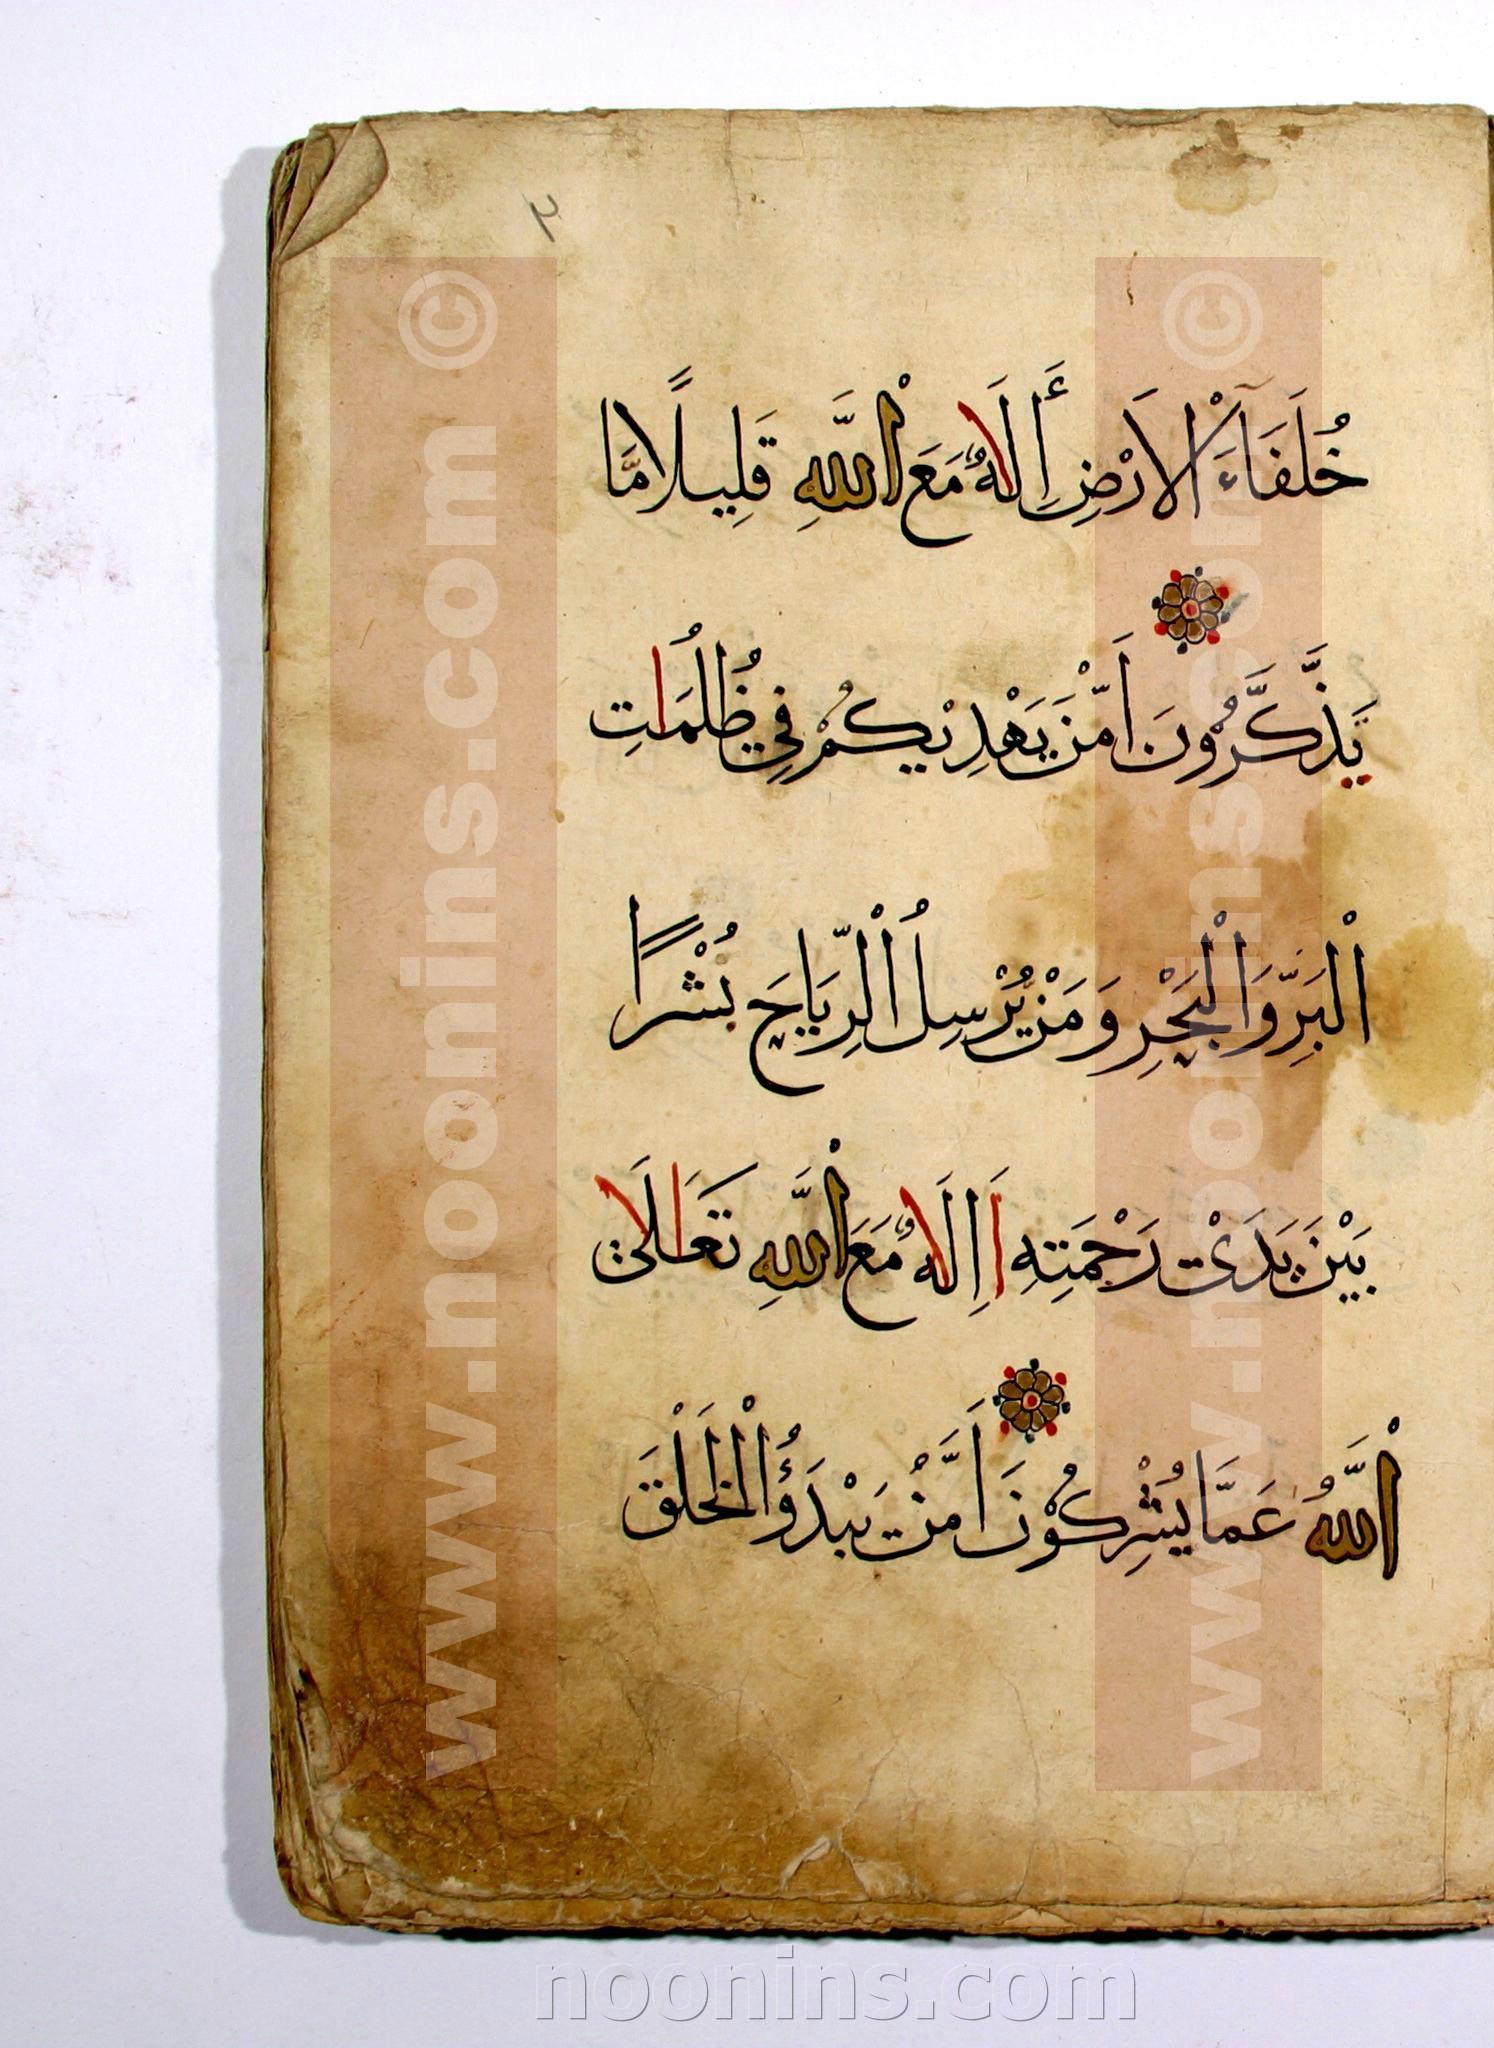 ٢
خُلَفَآءَ ٱلْأَرْضِ أَإِلَٰهٌ مَّعَ ٱللَّهِ قَلِيلًا مَّا
يَذَّكَّرُونَ أَمَّنْ يَهْدِيكُمْ فِي ظُلُمَاتِ
ٱلْبَرِّ وَٱلْبَحْرِ وَمَنْ يُرْسِلُ ٱلرِّيَاحَ بُشْرًا
بَيْنَ يَدَيْ رَحْمَتِهِ أَإِلَٰهٌ مَّعَ ٱللَّهِ تَعَالَى
ٱللَّهُ عَمَّا يُشْرِكُونَ أَمَّنْ يَبْدَؤُا ٱلْخَلْقَ
www.noonins.com ©
www.noonins.com ©
noonins.com